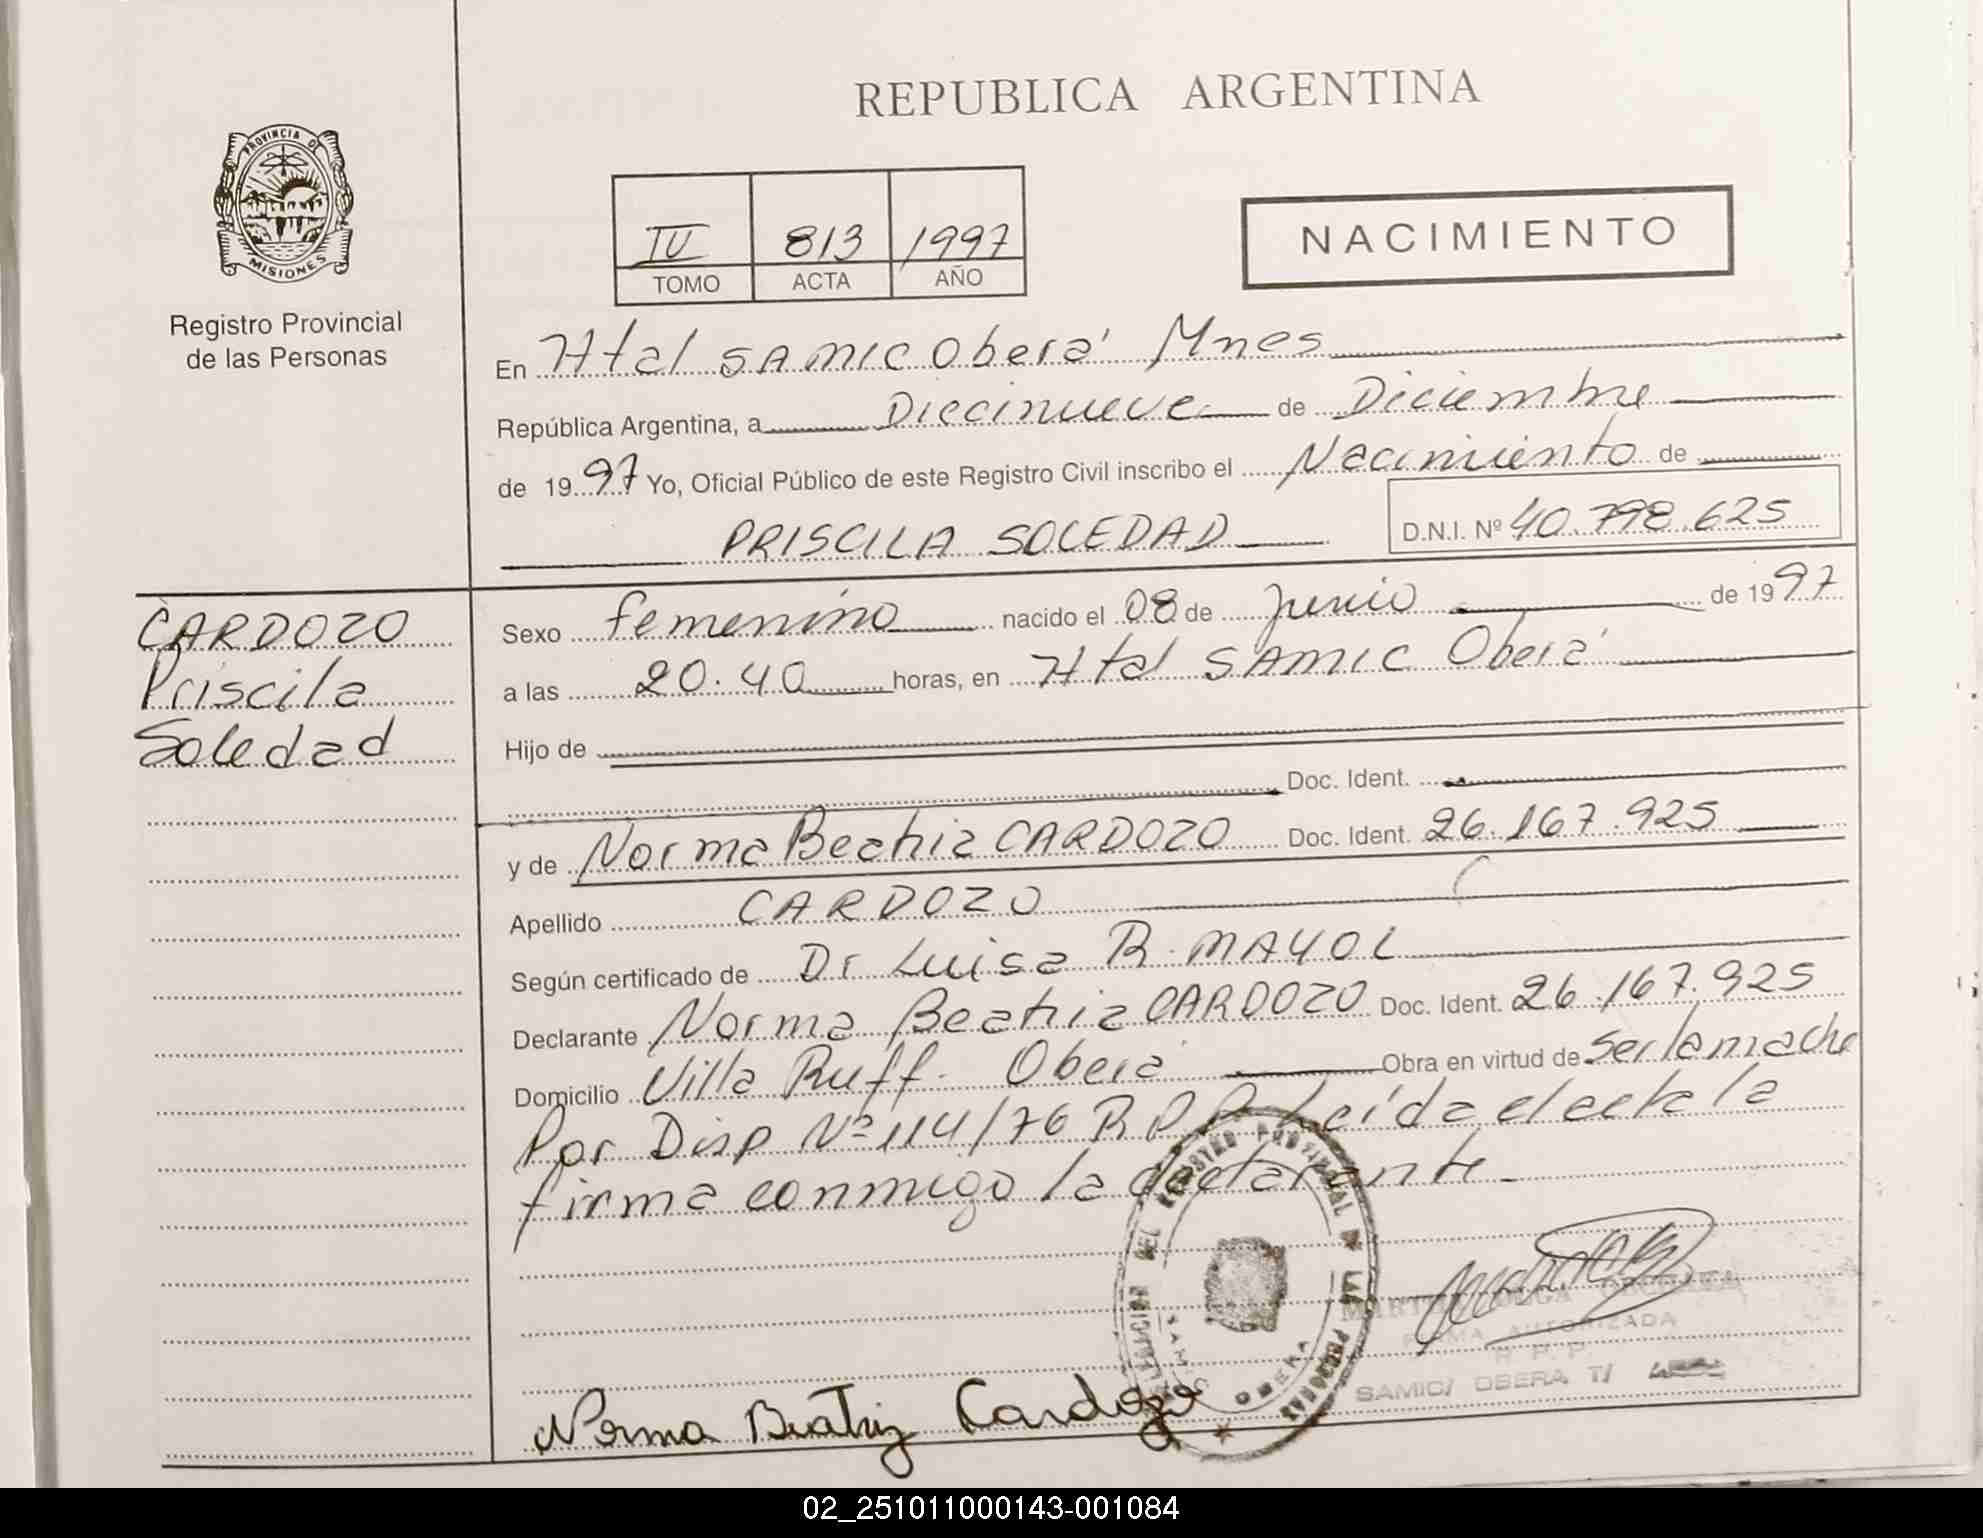 REPUBLICA ARGENTINA
PROVINCIA DE
MISIONES
Registro Provincial
de las Personas
IV 813 1997
TOMO ACTA AÑO
NACIMIENTO
En Htal SAMIC Oberá Mnes
República Argentina, a Diecinueve de Diciembre
de 1997 Yo, Oficial Público de este Registro Civil inscribo el Nacimiento de
PRISCILA SOLEDAD D.N.I. Nº 40.798.625
CARDOZO
Priscila
Soledad
Sexo femenino nacido el 08 de Junio de 1997
a las 20.40 horas, en Htal SAMIC Oberá
Hijo de
Doc. Ident.
y de Norma Beatriz CARDOZO Doc. Ident. 26.167.925
Apellido CARDOZO
Según certificado de Dr Luisa R. MAYOL
Declarante Norma Beatriz CARDOZO Doc. Ident. 26.167.925
Domicilio Villa Ruff. Oberá Obra en virtud de ser la madre
Por Disp Nº 114/76 R.P.P. Leída el acta la
firma conmigo la declarante.
DEL REGISTRO PROVINCIAL DE LAS PERSONAS
SAMIC OBERA
FIRMA AUTORIZADA
R. P. P.
SAMIC/ OBERA T/
Norma Beatriz Cardozo
02_251011000143-001084